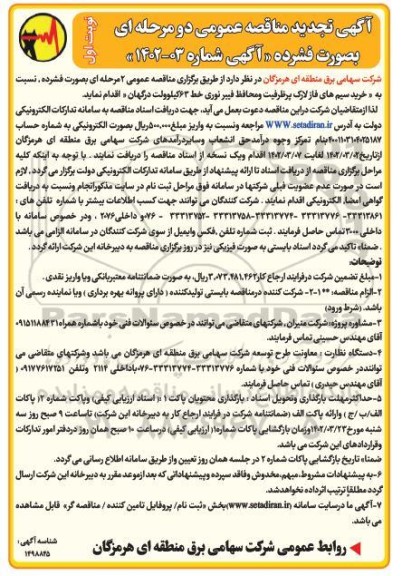 آگهی تجدید مناقصه عمومی دو مرحله ای
بصورت فشرده «آگهی شماره ۰۳-۱۴۰۲»
نوبت اول
شرکت سهامی برق منطقه ای هرمزگان در نظر دارد از طریق برگزاری مناقصه عمومی ۲مرحله ای بصورت فشرده , نسبت
به « خرید سیم های فاز لارک پرظرفیت ومحافظ فیبر نوری خط ۶۳کیلوولت درگهان » اقدام نماید.
لذا ازمتقاضیان شرکت دراین مناقصه دعوت بعمل می آید، جهت دریافت اسناد مناقصه به سامانه تدارکات الکترونیکی
دولت به آدرس www.setadiran.ir مراجعه ونسبت به واریز مبلغ ۵۰۰,۰۰۰ریال بصورت الکترونیکی به شماره حساب
بنام تمرکز وجوه درآمدحق انشعاب وسایردرآمدهای شرکت سهامی برق منطقه ای هرمزگان
ازتاریخ ۱۴۰۲/۰۳/۰۲ لغایت ۱۴۰۲/۰۳/۰۷ اقدام ویک نسخه از اسناد مناقصه را دریافت نمایند . با توجه به اینکه کلیه
مراحل برگزاری مناقصه از دریافت اسناد تا ارائه پیشنهاد از طریق سامانه تدارکات الکترونیکی دولت برگزار می گردد , لازم
است در صورت عدم عضویت قبلی شرکتها در سامانه فوق مراحل ثبت نام در سایت مذکورانجام ونسبت به دریافت
گواهی امضا, الکترونیکی اقدام نمایند . شرکت کنندگان می توانند جهت کسب اطلاعات بیشتر با شماره تلفن های :
۳۳۳۱۳۸۶۱-۳۳۳۱۳۷۷۶ -۳۳۳۱۳۷۷۴-۳۳۳۱۳۷۵۸ -۳۳۳۱۳۷۵۲ -۰۷۶ داخلی۲۰۷۶ , ودر خصوص سامانه با
داخلی ۲۰۰۰ تماس حاصل فرمایند . ثبت شماره تلفن ,فکس وایمیل از سوی شرکت کنندگان در سامانه الزامی می باشد
. ضمناً تاکید می گردد اسناد بایستی به صورت فیزیکی نیز در روز برگزاری مناقصه به دبیرخانه این شرکت ارائه گردد .
توضیحات:
۱-مبلغ تضمین شرکت درفرایند ارجاع کار۳,۰۷۳,۴۸۱,۴۶۳ریال, به صورت ضمانتنامه معتبربانکی ویا واریز نقدی .
شرکت کننده درمناقصه بایستی تولیدکننده ( دارای پروانه بهره برداری ) ویا نماینده رسمی آن
باشد. (شرط ورود)
۳-مشاوره پروژه: شرکت منیران , شرکتهای متقاضی می‌توانند در خصوص سئوالات فنی خود باشماره همراه ۰۹۱۵۱۱۸۸۴۳۱
آقای مهندس حسینی تماس فرمایند.
۴-دستگاه نظارت : معاونت طرح توسعه شرکت سهامی برق منطقه ای هرمزگان می باشد وشرکتهای متقاضی می
توانند در خصوص سئوالات فنی خود با شماره ۳۳۳۱۳۷۷۶-۳۳۳۱۳۷۷۴-۰۷۶باداخلی ۲۱۱۴ وتلفن ۰۹۱۷۷۶۱۷۲۵۱
آقای مهندس حیدری ; تماس حاصل فرمایند.
۵-حداکثرمهلت بارگذاری وتحویل اسناد : بارگذاری محتویان پاکت ۱ :( اسناد ارزیابی کیفی) وپاکت شماره ۲( پاکات
الف/ب /ج ) وارائه پاکت الف (ضمانتنامه شرکت در فرایند ارجاع کار به دبیرخانه این شرکت) تاساعت ۹ صبح روز سه
شنبه مورخ ۱۴۰۲/۰۳/۲۳ وزمان بازگشایی پاکات شماره۱( ارزیابی کیفی) درساعت ۱۰ صبح همان روز دردفتر امور تدارکات
وقراردادهای این شرکت می باشد.
ضمناً تاریخ بازگشایی پاکات شماره ۲ در جلسه همان روز تعیین واز طریق سامانه اطلاع رسانی می گردد.
۶-به پیشنهادات مشروط,مبهم,مخدوش وفاقد سپرده وپیشنهاداتی که بعد از موعد مقرر به دبیرخانه این شرکت ارسال
گردد مطلقا ترتیب اثرداده نخواهدشد.
۷-آگهی ما درسایت سامانه (www.setadiran.ir)بخش «ثبت نام/ پروفایل تامین کننده / مناقصه گر» قابل مشاهده
می باشد.
شناسه آگهی:
۱۴۹۸۸۴۵
روابط عمومی شرکت سهامی برق منطقه ای هرمزگان